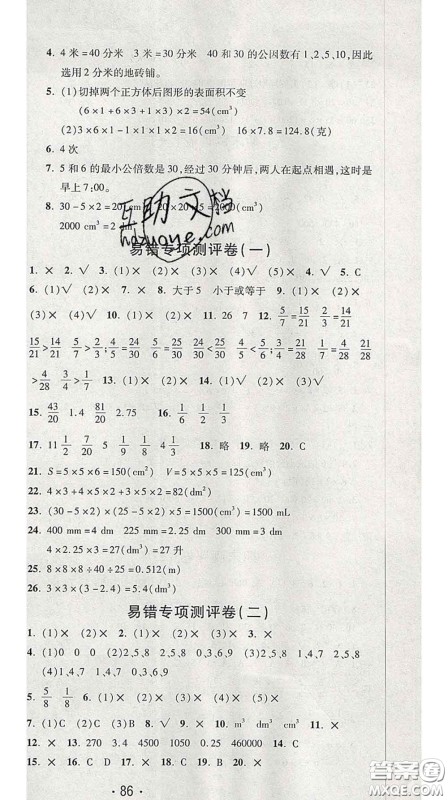 4. 4米=40分米 3米=30分米 40和30的公因数有1、2、5、10,因此
选用2分米的地砖铺。
5. (1)切掉两个正方体后图形的表面积不变
(6×1+6×3+1×3)×2=54(cm²)
(2)3×6×1-1×1×1×2=16(cm³) 16×7.8=124.8(克)
6. 4次
7. 5和6的最小公倍数是30,经过30分钟后,两人在起点相遇,这时是
早上7:00。
8. 30-5×2=20(cm) 20×20×5=2000(cm³)
2000 cm³=2 dm³
互助文档
hdzuoye.com
易错专项测评卷(一)
1. × 2. √ 3. (1)× (2)√ (3)√ 4. × 5. C
6. (1)√ (2)√ 7. × 8. × 9. × 8. 大于5 小于或等于5 9. (1)×
(2)√ 10. (1)× (2)× 11. 26 7 12. 5/7=15/21 2/3=14/21
15/21>14/21 5/7>2/3; 4/5=24/30 5/6=25/30 24/30<25/30 4/5<5/6; 3/4=21/28 1/7=4/28 21/28
>4/28 3/4>1/7 13. (1)× (2)√ 14. (1)× (2)√ (3)√
15. 43/20 1.4 81/20 2.75 16. 1/6 1/2 1/2
17. 11 1/2 7/20 5 1/9 1/8 4 1/3 18. 略 19. 略 20. C
21. S=5×5×6=150(cm²) V=5×5×5=125(cm³)
22. 4×3+4×5×2+3×5×2=82(dm²)
23. (30-5×2)×(25-5×2)×5=1500(cm³)=1500 mL
24. 400 mm=4 dm 225 mm=2.25 dm 300 mm=3 dm
4×2.25×3=27(dm³)=27升
25. 8×8×8÷40÷25=0.512(dm)
26. 3×3×(3÷3)=9(dm³)
易错专项测评卷(二)
1. (1)× (2)× 2. (1)× (2)× (3)× 3. ×
4. (1)0 (2)2、5、8 0、9 (3)2、5、8 1、4、7 2、5、8
(4)1、4、7 2、5、8 0、3、6、9 1、4、7 2、5、8
5. 5/8 1/8 6. (1)√ (2)× (3)×
7. (1)C (2)D 8. × 9. √ 10. m³ dm³ mL 11. ×
12. × 13. 3.4 4500 0.25 460000 14. (1)B (2)B
15. × 16. × 17. × 18. × 19. × 20. C
· 86 ·
答案圈
MXQE.COM